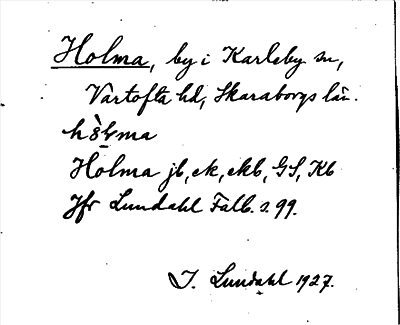 Holma, by i Karleby sn,
Vartofta hd, Skaraborgs län.
Holma jb, ek, ekb, GS, Kb
Jfr Lundahl Falb. s. 99.
I. Lundahl 1927.